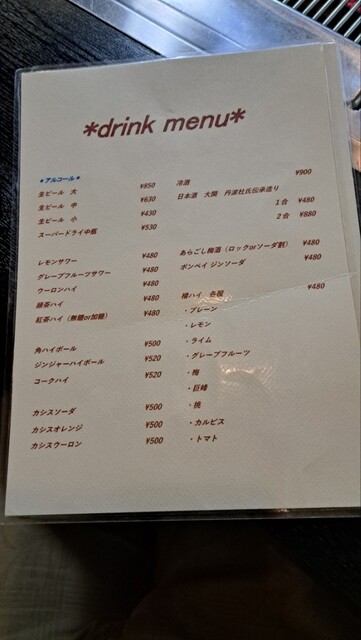 *drink menu*
*アルコール*
生ビール 大 ¥850
生ビール 中 ¥630
生ビール 小 ¥430
スーパードライ中瓶 ¥530
レモンサワー ¥480
グレープフルーツサワー ¥480
ウーロンハイ ¥480
緑茶ハイ ¥480
紅茶ハイ（無糖or加糖） ¥480
角ハイボール ¥500
ジンジャーハイボール ¥520
コークハイ ¥520
カシスソーダ ¥500
カシスオレンジ ¥500
カシスウーロン ¥500
冷酒 ¥900
日本酒 大関 丹波杜氏伝承造り
1合 ¥480
2合 ¥880
あらごし梅酒（ロックorソーダ割） ¥480
ボンベイ ジンソーダ ¥480
酎ハイ 各種 ¥480
・プレーン
・レモン
・ライム
・グレープフルーツ
・梅
・巨峰
・桃
・カルピス
・トマト